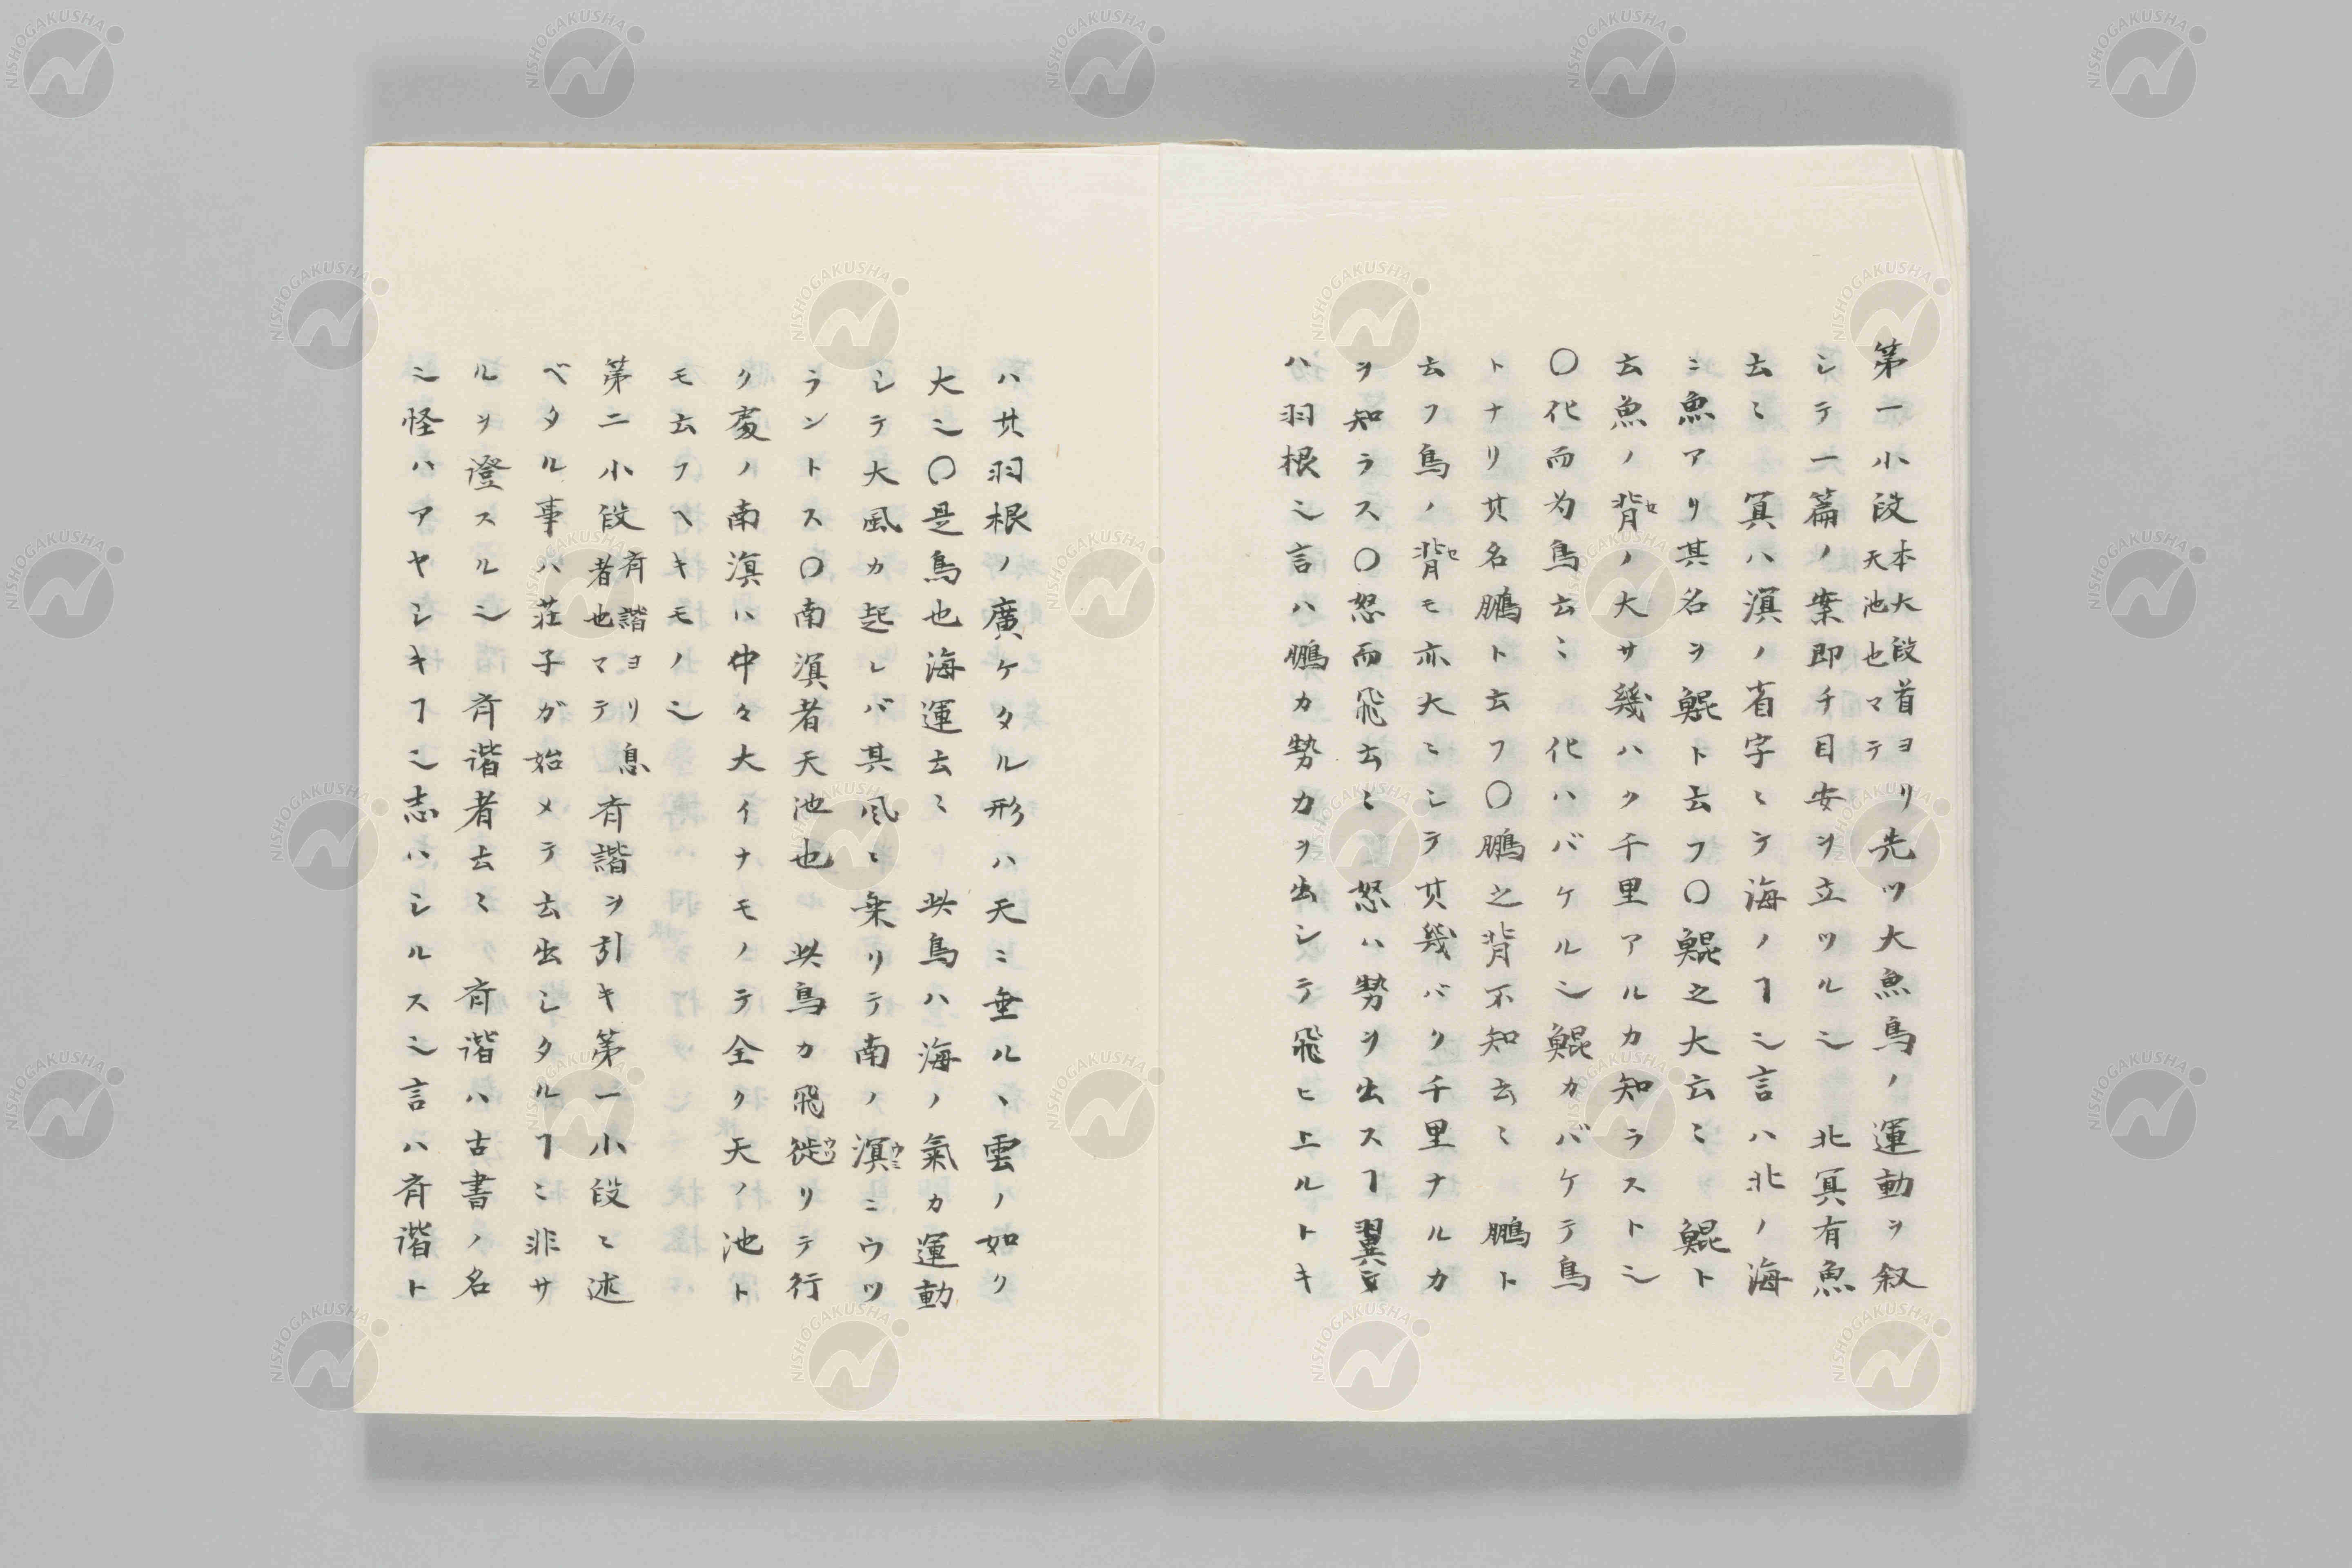 第一小段本大段首ヨリ天池也マテ先ツ大魚鳥ノ運動ヲ叙
シテ一篇ノ案即チ目安ヲ立ツル〆北冥有魚
云〻冥ハ溟ノ省字ニテ海ノヿ〆言ハ北ノ海
ニ魚アリ其名ヲ鯤ト云フ〇鯤之大云〻鯤ト
云魚ノ背セノ大サ幾ハク千里アルカ知ラスト〆
〇化而为鳥云〻化ハバケル〆鯤カバケテ鳥
トナリ其名鵬ト云フ〇鵬之背不知云〻鵬ト
云フ鳥ノ背セモ亦大ニシテ其幾バク千里ナルカ
ヲ知ラス〇怒而飛云〻怒ハ勢ヲ出スヿ翼云
ハ羽根〆言ハ鵬カ勢カヲ出シテ飛ヒ上ルトキ
ハ其羽根ノ廣ケタル形ハ天ニ垂ルヽ雲ノ如ク
大〆〇是鳥也海運云〻此鳥ハ海ノ氣カ運動
シテ大風カ起レバ其風ニ乗リテ南ノ溟ウミニウツ
ラントス〇南溟者天池也此鳥カ飛徙ウツリテ行
ク處ノ南溟ハ中々大イナモノテ全ク天ノ池ト
モ云フヘキモノ〆
第二小段斉諧ヨリ息者也マテ斉諧ヲ引キ第一小段ニ述
ベタル事ハ荘子ガ始メテ云出シタルヿニ非サ
ルヲ澄スル〆斉諧者云〻斉諧ハ古書ノ名
〆怪ハアヤシキヿ〆志ハシルス〆言ハ斉諧ト